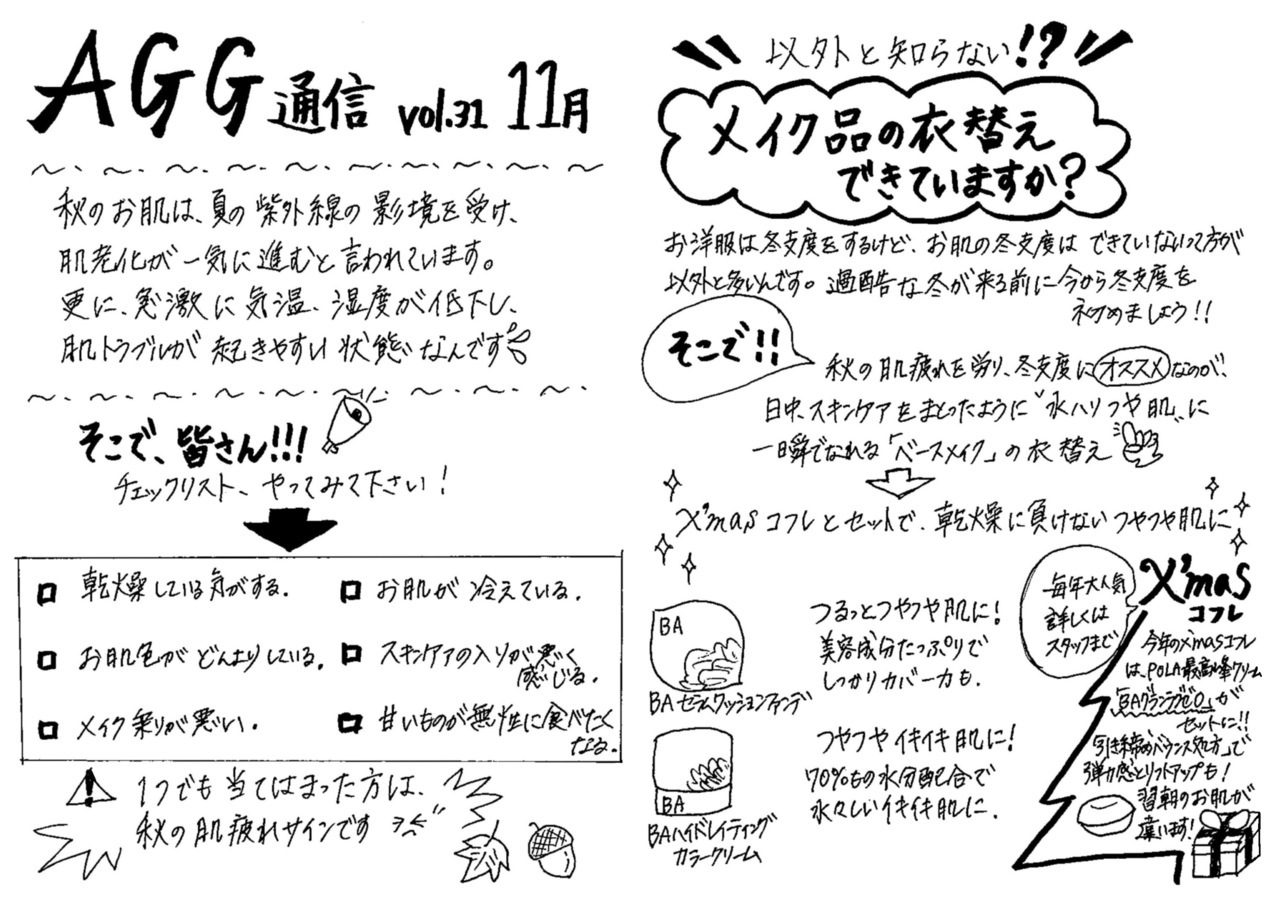 AGG 通信 vol.31 11月
秋のお肌は、夏の紫外線の影境を受け、
肌老化が一気に進むと言われています。
更に、急激に気温、湿度が低下し、
肌トラブルが起きやすい状態なんです
そこで、皆さん!!!
チェックリスト、やってみて下さい!
乾燥している気がする.
お肌色がどんよりしている.
メイク乗りが悪い.
お肌が冷えている.
スキンケアの入りが悪く
感じる.
甘いものが無性に食べたく
なる.
1つでも当てはまった方は、
秋の肌疲れサインです
以外と知らない!?
メイク品の衣替え
できていますか?
お洋服は冬支度をするけど、お肌の冬支度はできていないって方が
以外と多いんです。過酷な冬が来る前に今から冬支度を
初めましょう!!
そこで!!
秋の肌疲れを労り、冬支度にオススメなのが、
日中、スキンケアをまとったように"水ハリつや肌"に
一瞬でなれる「ベースメイク」の衣替え
X'masコフレとセットで、乾燥に負けないつやつや肌に
BA
BAセラムクッションファンデ
つるっとつやつや肌に!
美容成分たっぷりで
しっかりカバー力も.
BA
BAハイドレイティング
カラークリーム
つやつやイキイキ肌に!
70%もの水分配合で
水々しいイキイキ肌に.
毎年大人気
詳しくは
スタッフまで
X'mas
コフレ
今年のX'masコフレ
は、POLA最高峰クリーム
「BAグランラグゼO」が
セットに!!
「引き締めバウンス処方」で
弾力感とリフトアップも!
翌朝のお肌が
違います!